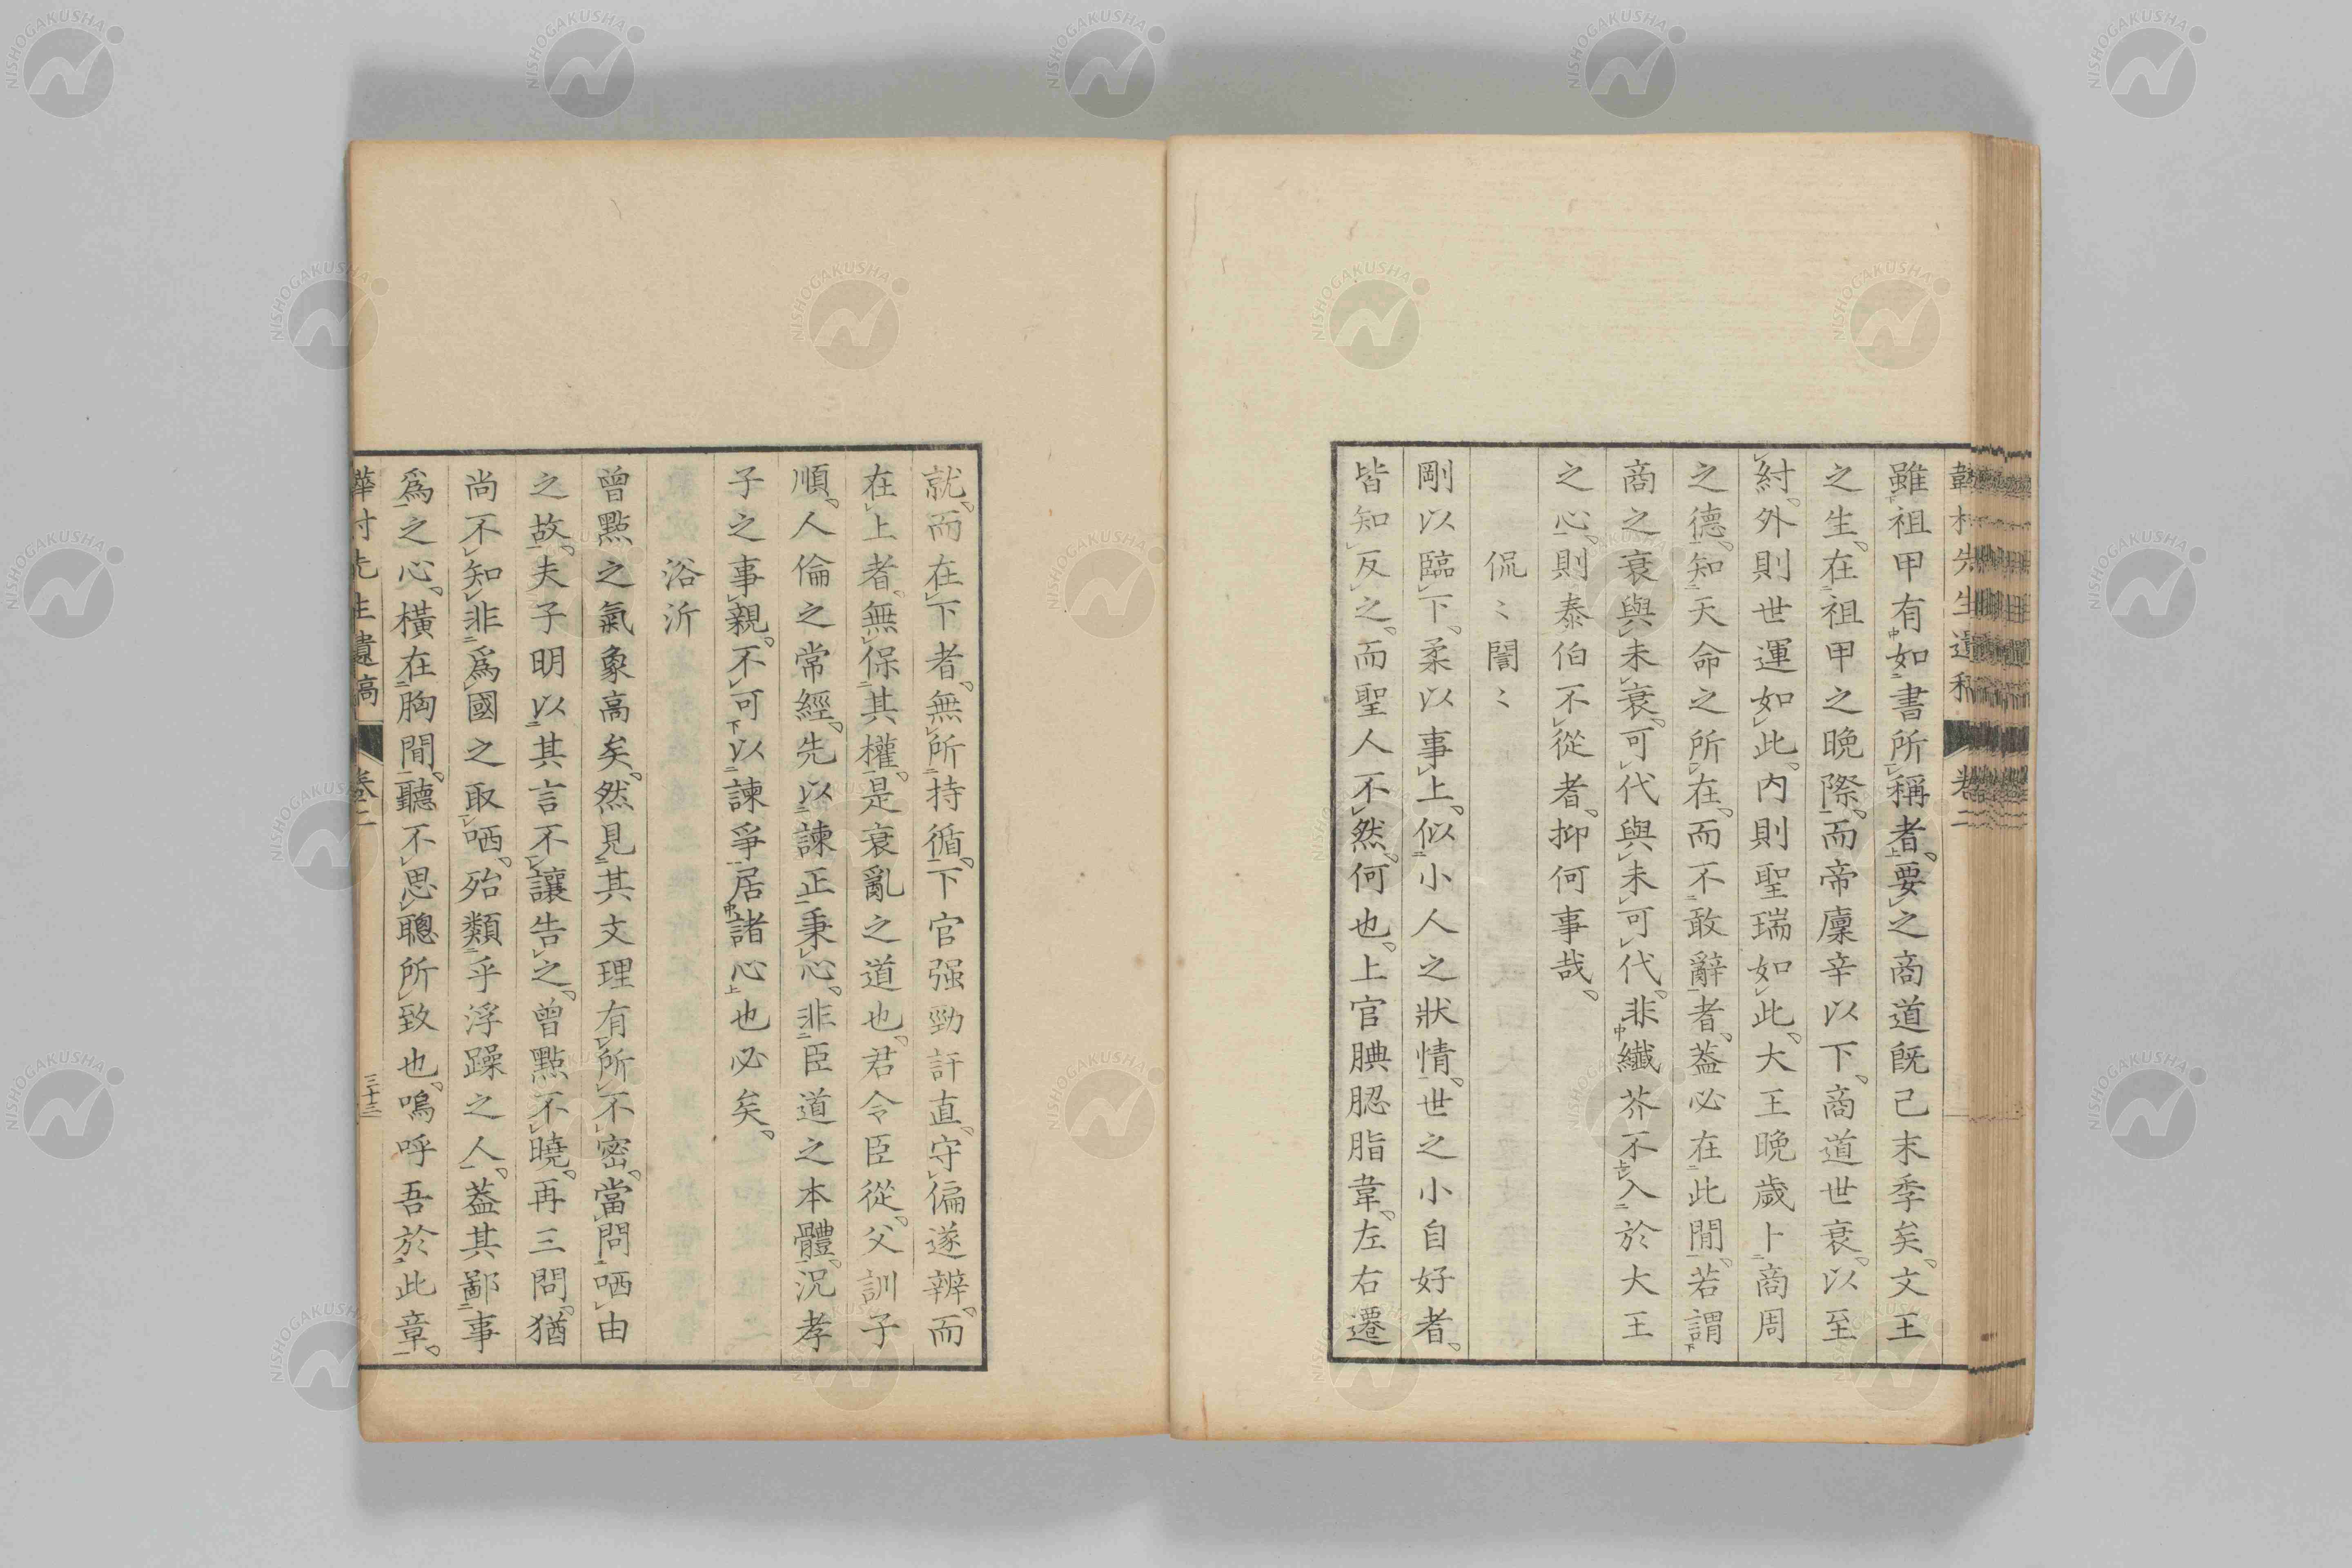 雖祖甲有如書所稱者要之商道既己末季矣文王
之生在祖甲之晩際而帝廩辛以下商道世衰以至
紂外則世運如此内則聖瑞如此大王晩歲卜商周
之德知天命之所在而不敢辭者葢必在此間若謂
商之衰與未衰可代與未可代非纎芥不入於大王
之心則泰伯不從者抑何事哉
侃〻誾〻
剛以臨下柔以事上似小人之狀情世之小自好者
皆知反之而聖人不然何也上官腆𦛗脂韋左右遷
就而在下者無所持循下官强勁訐直守偏遂辨而
在上者無保其權是衰亂之道也君令臣從父訓子
順人倫之常經先以諫正秉心非臣道之本體況孝
子之事親不可以諫爭居諸心也必矣
浴沂
曾點之氣象高矣然見其文理有所不密當問哂由
之故夫子明以其言不讓告之曾點不曉再三問猶
尚不知非爲國之取哂殆類乎浮躁之人葢其鄙事
爲之心橫在胸間聽不思聰所致也嗚呼吾於此章
村先生遺稿 卷二 三十三
NISHOGAKUSHA